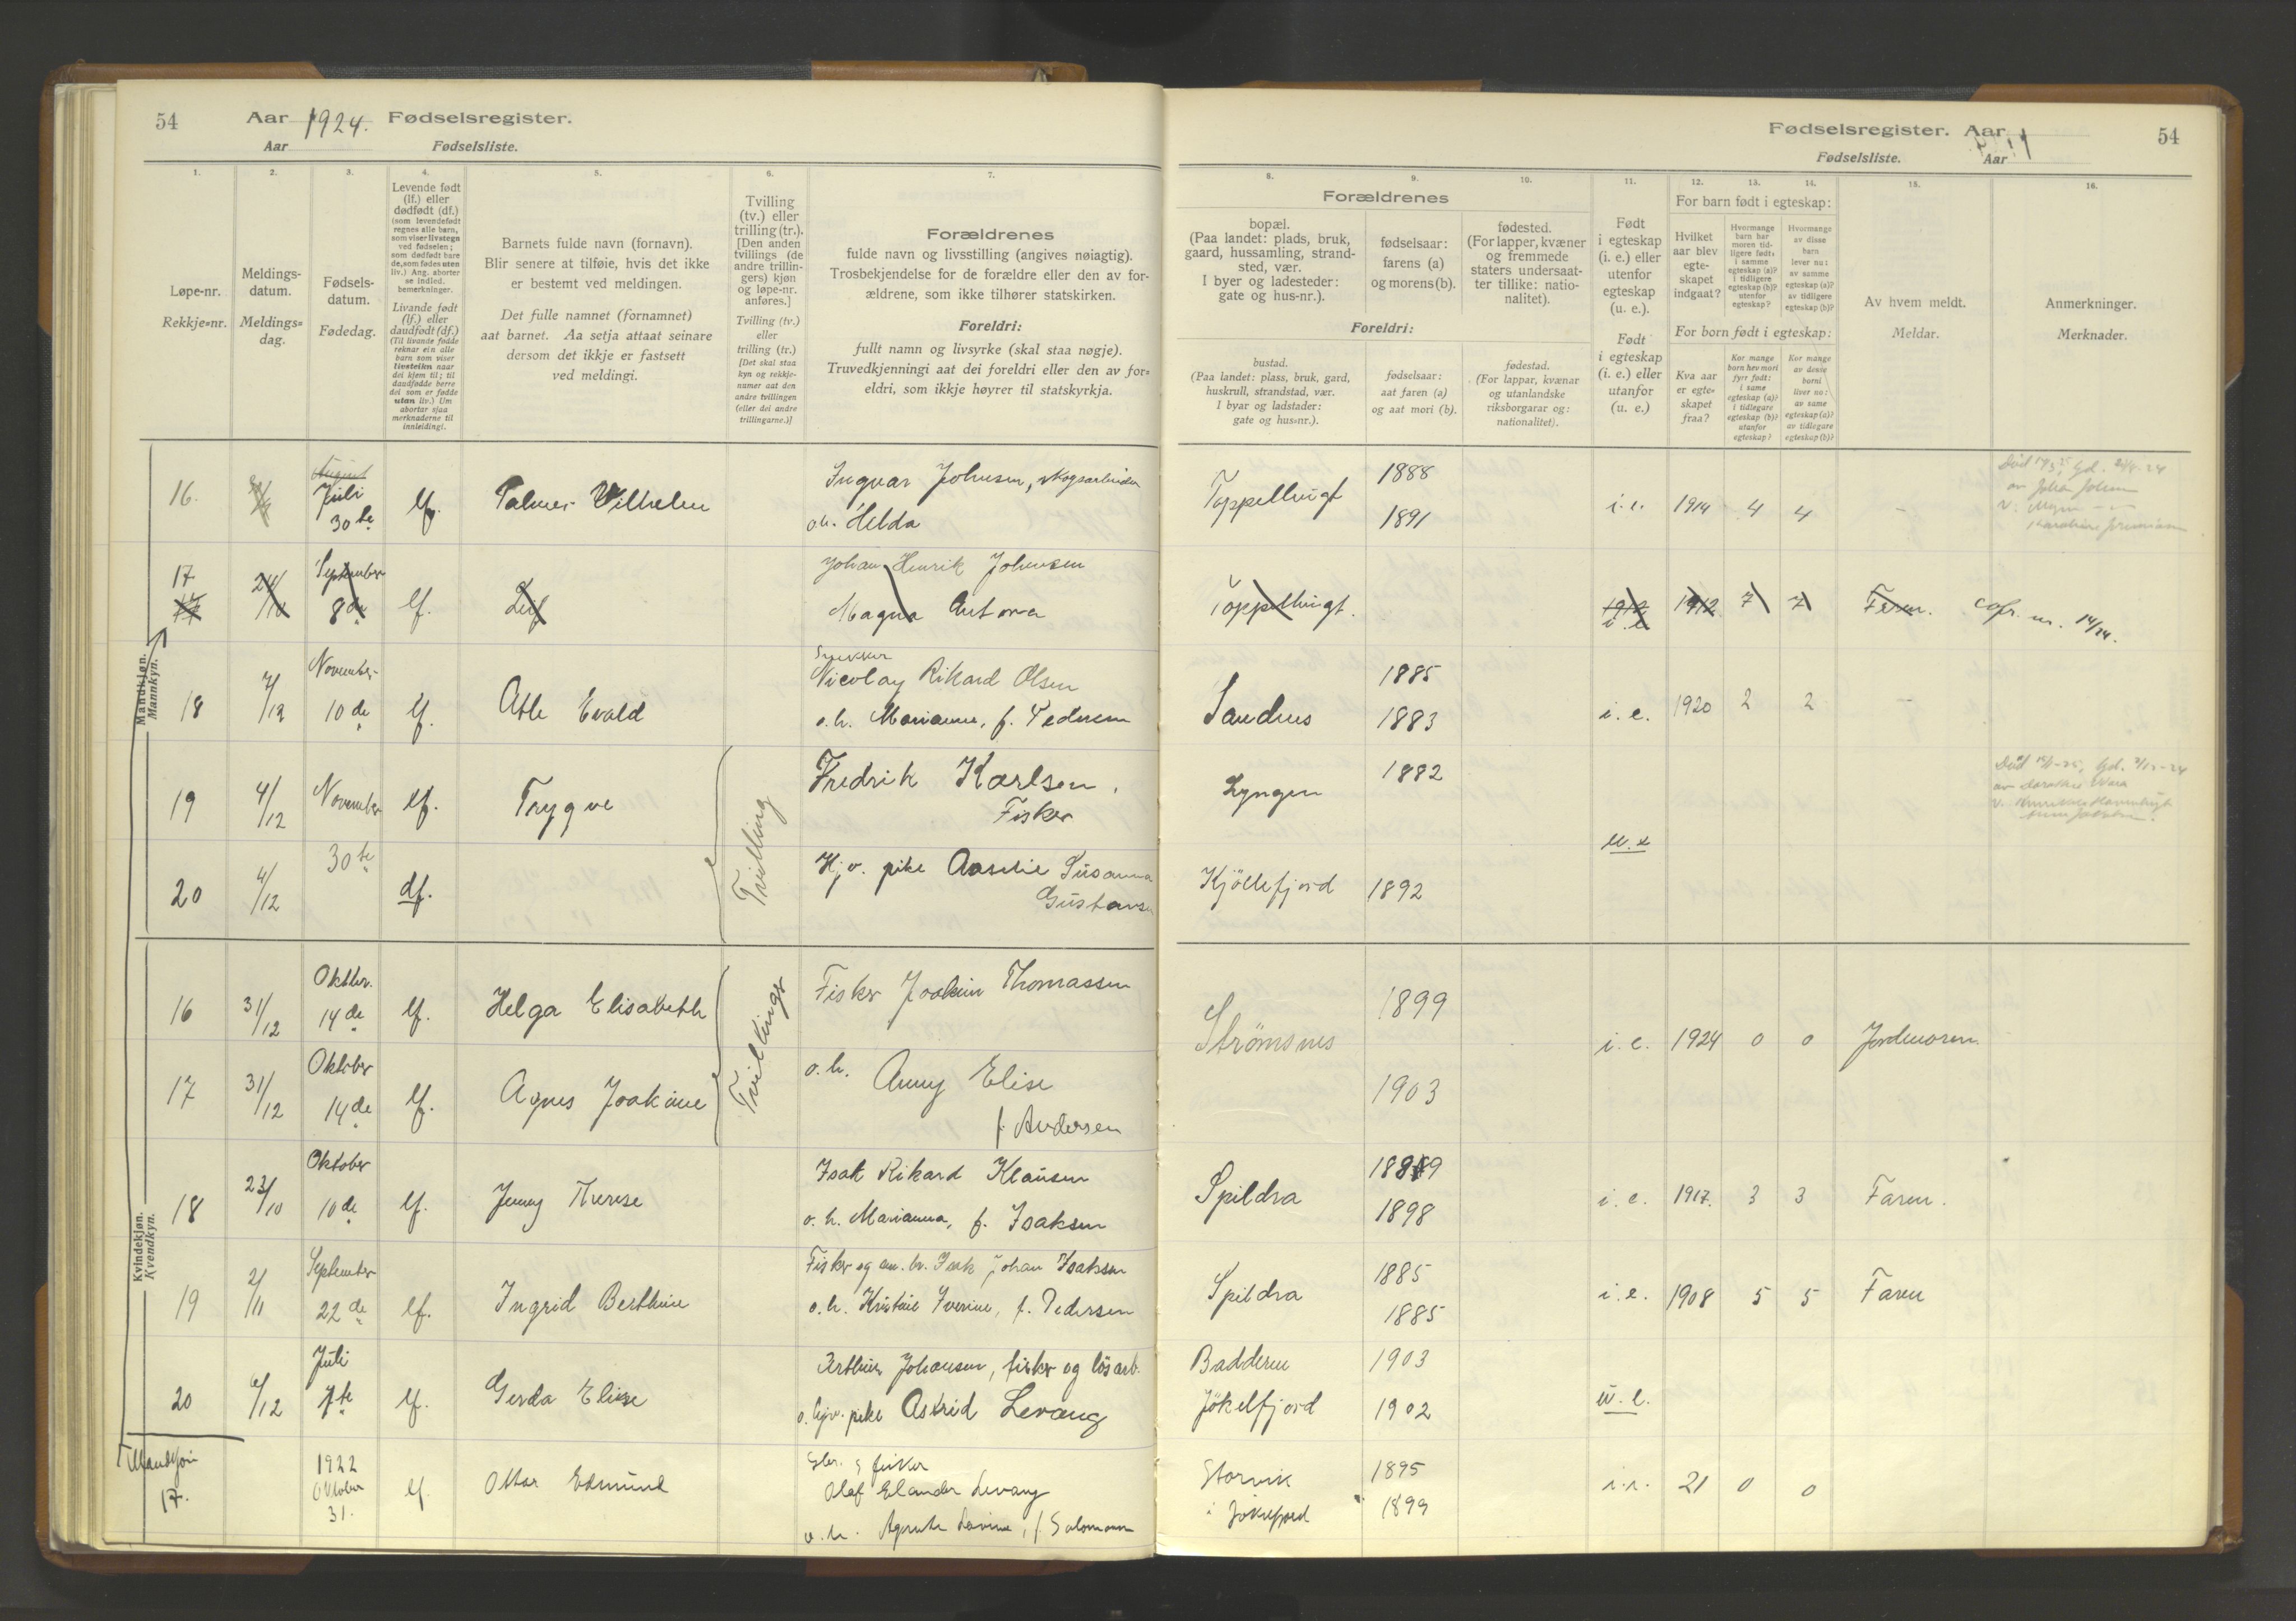 54
Aar 1924. Fødselsregister.
Aar Fødselsliste.
Fødselsregister. Aar
Fødselsliste. Aar
54
1.
Løpe-nr.
Rekkje=nr.
2.
Meldings-
datum.
Meldings=
dag.
3.
Fødsels-
datum.
Fødedag.
4.
Levende født
(lf.) eller
dødfødt (df.)
(som levendefødt
regnes alle barn,
som viser livstegn
ved fødselen;
som dødfødt bare
de, som fødes uten
liv.) Ang. aborter
se indled.
bemerkninger.
Livande født
(lf.) eller
daudfødt (df.)
(Til livande fødde
reknar ein alle
barn som viser
livsteikn naar
dei kjem til; til
daudfødde berre
dei som er fødde
utan liv.) Um
abortar sjaa
merknaderne til
innleidingi.
5.
Barnets fulde navn (fornavn).
Blir senere at tilføie, hvis det ikke
er bestemt ved meldingen.
Det fulle namnet (fornamnet)
aat barnet. Aa setja attaat seinare
dersom det ikkje er fastsett
ved meldingi.
6.
Tvilling
(tv.) eller
trilling (tr.).
[Den anden
tvillings (de
andre trillin-
gers) kjøn
og løpe-nr.
anføres.]
Tvilling (tv.)
eller
trilling (tr.)
[Det skal staa
kyn og rekkje-
numer aat den
andre tvillingen
(eller dei andre
trillingarne.)]
7.
Forældrenes
fulde navn og livsstilling (angives nøiagtig).
Trosbekjendelse for de forældre eller den av for-
ældrene, som ikke tilhører statskirken.
Foreldri:
fullt namn og livsyrke (skal staa nøgje).
Truvedkjenningi aat dei foreldri eller den av for=
eldri, som ikkje høyrer til statskyrkja.
8. 9. 10.
Forældrenes
bopæl.
(Paa landet: plads, bruk,
gaard, hussamling, strand-
sted, vær.
I byer og ladesteder:
gate og hus-nr.).
fødselsaar:
farens (a)
og morens (b).
fødested.
(For lapper, kvæner
og fremmede
staters undersaat-
ter tillike: natio-
nalitet).
Foreldri:
bustad.
(Paa landet: plass, bruk, gard,
huskrull, strandstad, vær.
I byar og ladstader:
gate og hus=nr.).
fødselsaar:
aat faren (a)
og aat mori (b).
fødestad.
(For lappar, kvænar
og utanlandske
riksborgarar og:
nationalitet).
11.
Født
i egteskap
(i. e.) eller
utenfor
egteskap
(u. e.).
Født
i egteskap
(i. e.) eller
utanfor
(u. e.)
12. 13. 14.
For barn født i egteskap:
Hvilket
aar blev
egte-
skapet
indgaat?
Hvormange
barn har
moren tid-
ligere født:
i samme
egteskap (a)?
i tidligere
egteskap (b)?
utenfor
egteskap?
Hvormange
av disse
barn
lever nu:
av samme
egteskap (a)?
av tidligere
egteskap (b)?
For born født i egteskap:
Kva aar
er egte-
skapet
fraa?
Kor mange
born hev mori
fyrr født:
i same
egteskap (a)?
i tidlegare
egteskap (b)?
utanfor
egteskap?
Kor mange
av desse
borni
liver no:
av same
egteskap (a)?
av tidlegare
egteskap (b)?
15.
Av hvem meldt.
Meldar.
16.
Anmerkninger.
Merknader.
Mandkjøn.
Mannkyn.
16. August Juli 30te lf. Palmer Wilhelm Ingvar Johnsen, skogsarbeider
o.h. Helda
Toppelbugt 1888 1891 i.e. 1914 4 4 -
17 24/10 September 8de lf. Leif Johan Henrik Johnsen
Magna Antona
Toppelbugt. 1912 i.e. 1912 7 7 Faren. cofr. nr. 14/24.
18 7/12 November 10de lf. Atle Evald Snekker
Nicolay Rikard Olsen
o.h. Marianne, f. Pedersen
Sandnes 1885 1883 i.e. 1920 2 2 -
19 4/12 November 30te lf. Trygve Tvilling Fredrik Karlsen,
Fisker
Lyngen 1882 u.e
20 4/12 df. Hjv. pike Aaselie Susanna
Gustavsen
Kjöllefjord 1892
Kvindekjøn.
Kvendkyn.
16 31/12 Oktbr. 14de lf. Helga Elisabeth Tvillinger Fisker Joakim Thomassen
Strømsnes 1899 i.e. 1924 0 0 Jordmoren
17 31/12 Oktober 14de lf. Agnes Joakime o.h. Anny Elise
f. Andersen
1903
18 23/10 Oktober 10de lf. Jenny Therese Isak Rikard Klausen
o.h. Marianna, f. Isaksen
Spildra 1889 1898 i.e. 1917. 3 3 Faren.
19 2/11 September 22de lf. Ingrid Berthine Fisker og Isak Johan Isaksen
o.h. Kristine Iverine, f. Pedersen
Spildra 1885 1885 i.e. 1908 5 5 Faren
20 6/12 Juli 7te lf. Gerda Elise Johansen, fisker og løsarb.
o. hjv. pike Astrid Levang
Badderen 1903
Jøkelfjord 1902 u.e.
Mandkjøn
17. 1922 Oktober 31. lf. Ottar Edmund Gbr. & fisker
Olaf Elander Levang
o.h. Agnete Lovine, f. Salomonsen
Storvik
i Jøkelfjord
1895 1899 i.e. 21 0 0